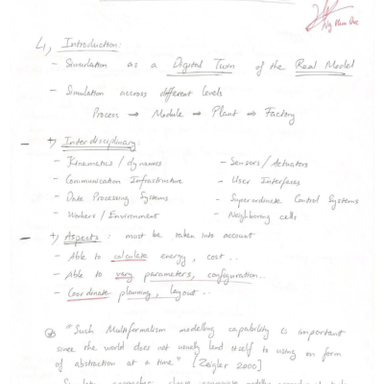 Ng Hữu Đức
4, Introduction:
- Simulation as a Digital Twin of the Real Model
- Simulation accross different levels
Process → Module → Plant → Factory
+, Interdisciplinary:
- Kinematics / dynames
- Sensors / Actuators
- Communication Infrastructure
- User Interfaces
- Data Processing Systems
- Superordinate Control Systems
- Workers / Environment
- Neighboring cells
+, Aspects: must be taken into account
- Able to calculate energy, cost ..
- Able to very parameters, configuration..
- Coordinate planning, layout ..
"Such Multiformalism modelling capability is important
since the world does not usually lend itself to using on form
of abstraction at a time" [Zeigler 2000]